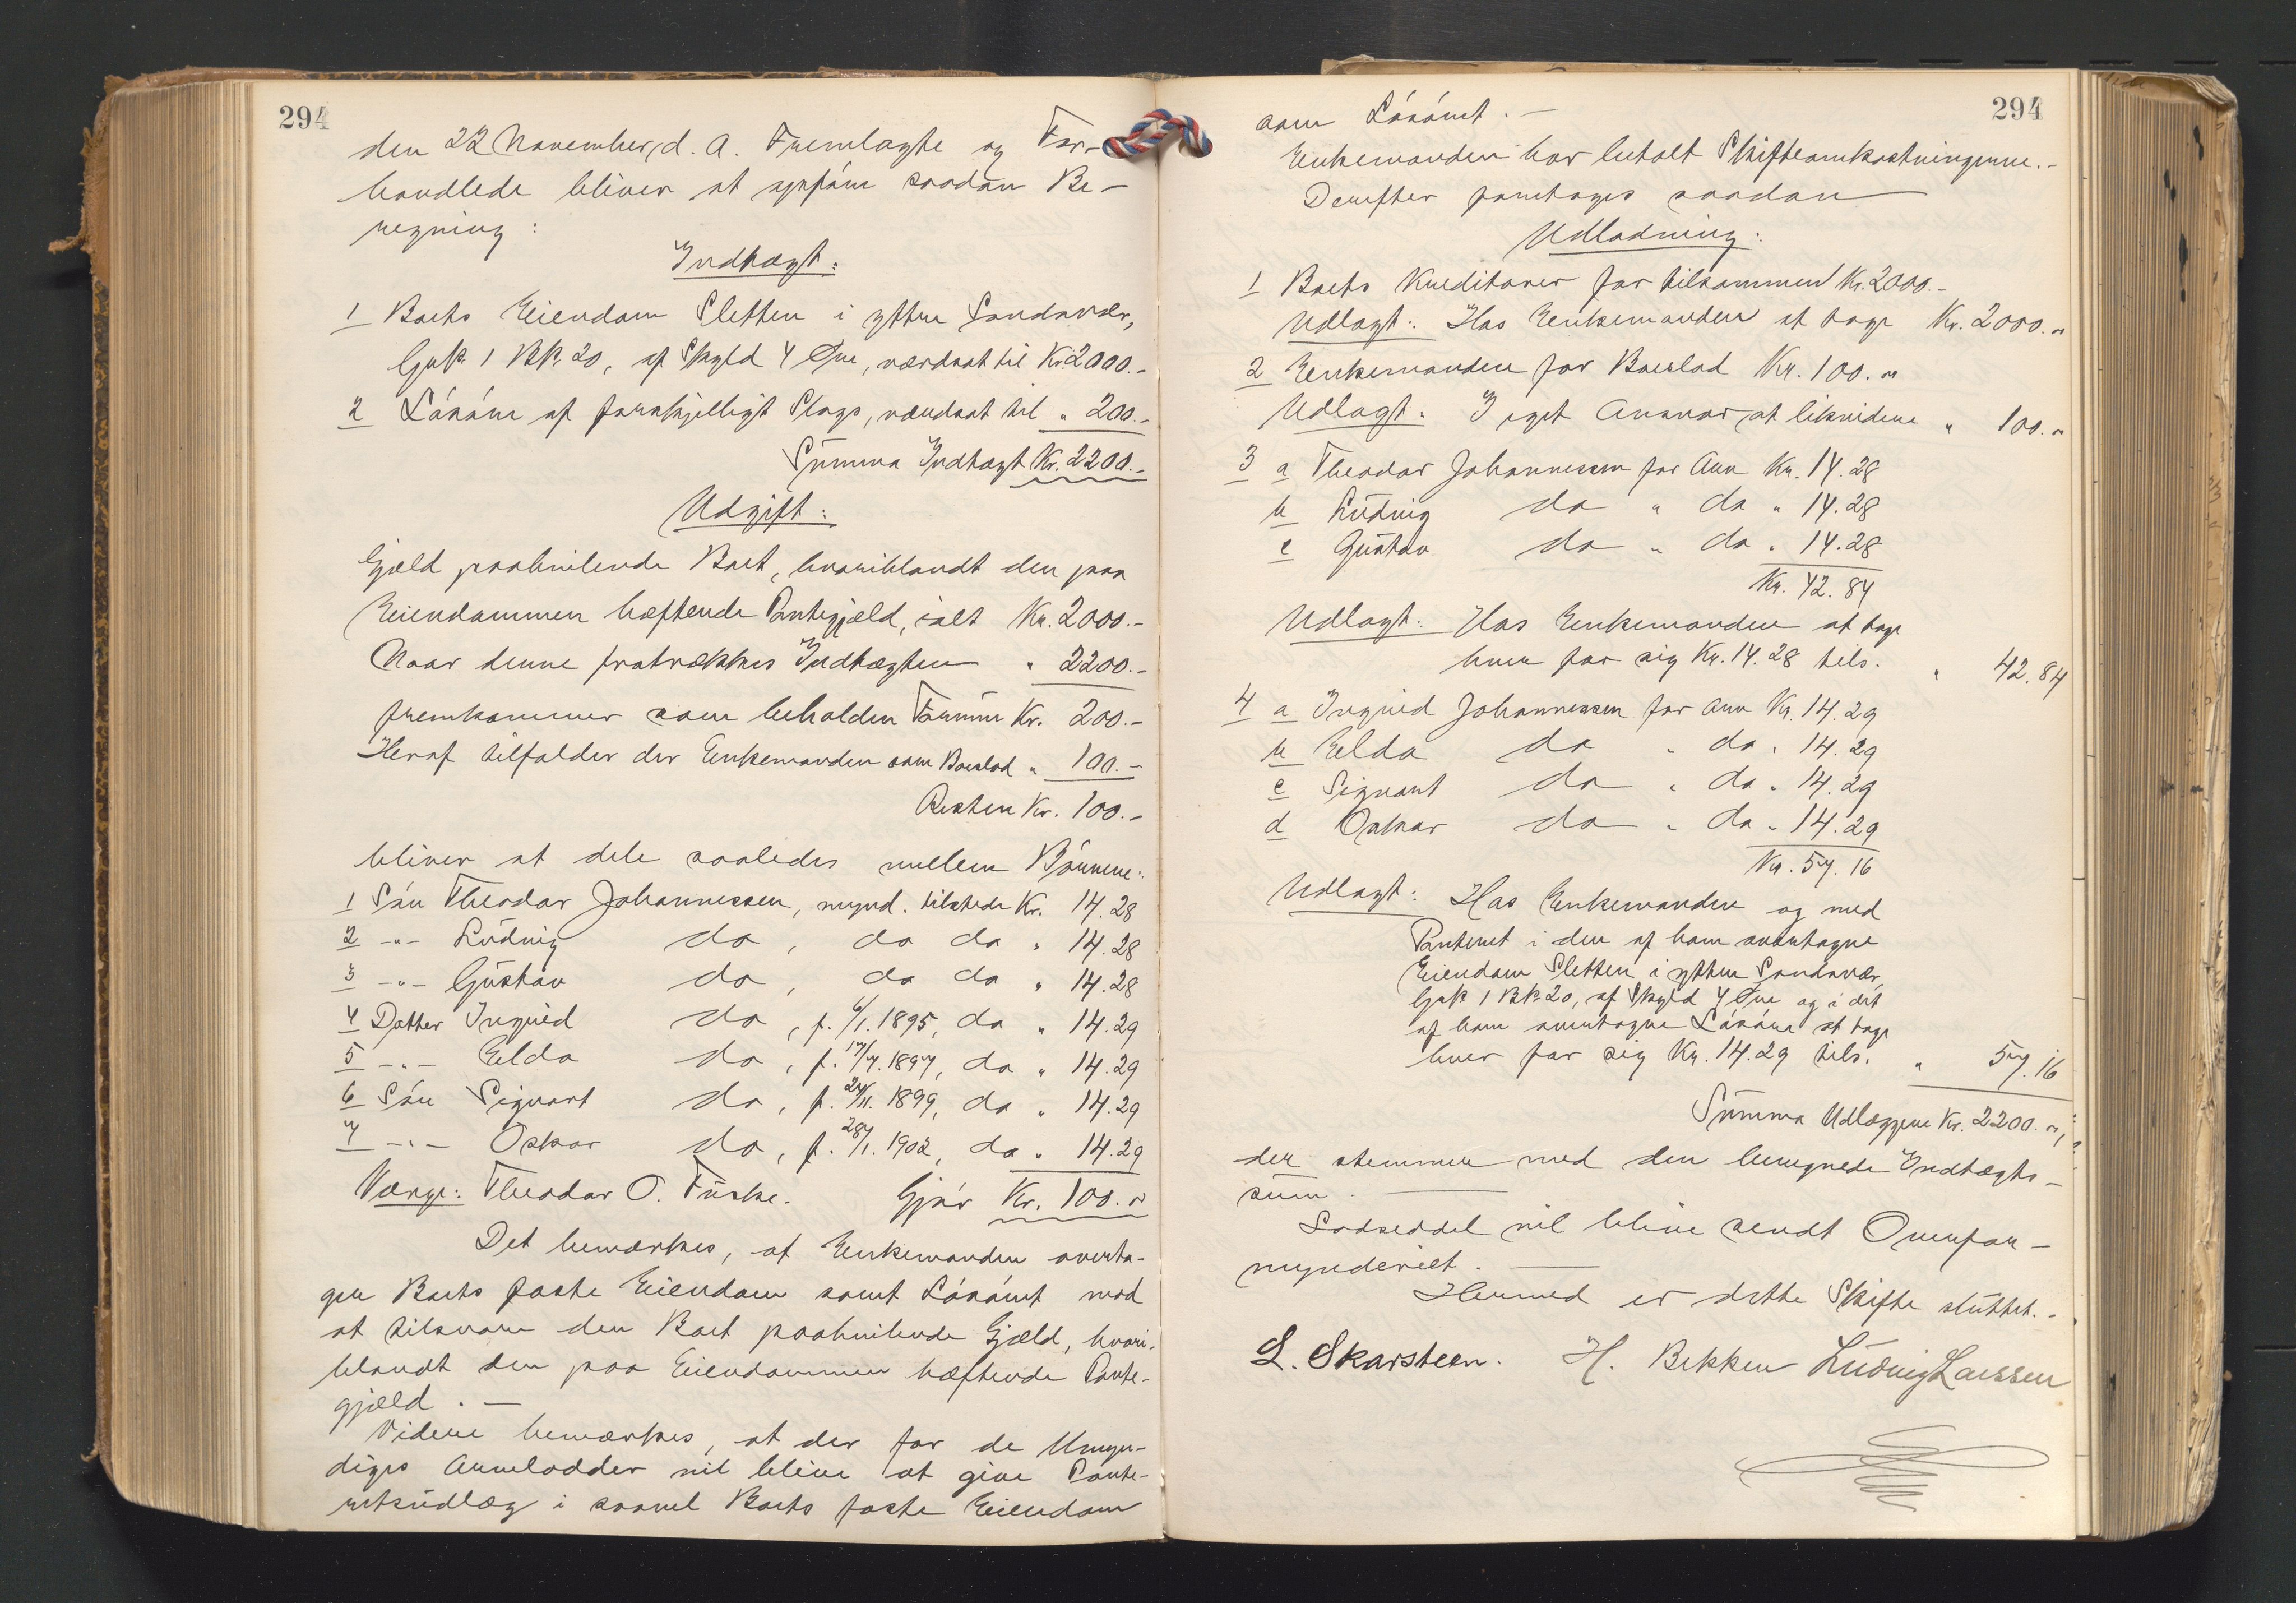 294
den 22 November d. A. Fremlagte og For-
handlede bliver at opføre saadan Be-
regning:
Indtægt:
1 Boets Eiendom Sletten i yttre Sandavær,
Gnr 1 BR. 20, af Skyld 4 Øre, værdsat til Kr. 2000.-
2 Løsøre af forskjelligt Slags, værdsat til " 200.-
Summa Indtægt Kr. 2200.-
Udgift:
Gjæld paahvilende Boet, hvoriblandt den paa
Eiendommen hæftende Pantegjæld, ialt Kr. 2000.-
Naar denne fratrækkes Indtægten " 2200.-
fremkommer som beholden Formue Kr. 200.-
Heraf tilfalder der Enkemanden som Boeslod " 100.-
Resten Kr. 100.-
bliver at dele saaledes mellem Børnene:
1 Søn Theodor Johannessen, mynd. tilstede Kr. 14.28
2 -"- Ludvig do, do do " 14.28
3 -"- Gustav do, do do " 14.28
4 Datter Ingrid do, f. 6/1. 1895, do " 14.29
5 -"- Elda do, f. 17/7. 1897, do " 14.29
6 Søn Sigvart do, f. 24/11. 1899, do " 14.29
7 -"- Oskar do, f. 28/1. 1902, do " 14.29
Værge: Theodor O. Fuske. Gjør Kr. 100.-
Det bemærkes, at Enkemanden overta-
ger Boets faste Eiendom samt Løsøret mod
at tilsvare den Boet paahvilende Gjæld, hvori-
blandt den paa Eiendommen hæftende Pante-
gjæld.-
Videre bemærkes, at der for de Umyn-
diges Arvelodder vil blive at give Pante-
retsudlæg i saavel Boets faste Eiendom
294
som Løsøret.-
Enkemanden har betalt Skifteomkostningerne.-
Derefter foretoges saadan
Udlodning:
1 Boets Kreditorer for tilsammen Kr. 2000.-
Udlagt: Hos Enkemanden at tage Kr. 2000.-
2 Enkemanden for Boeslod Kr. 100.-
Udlagt: I eget Ansvar at likvidere " 100.-
3 a Theodor Johannessen for Arv Kr. 14.28
b Ludvig do " do " 14.28
c Gustav do " do " 14.28
Kr. 42.84
Udlagt: Hos Enkemanden at tage
hver for sig Kr. 14.28 tils. " 42.84
4 a Ingrid Johannessen for Arv Kr. 14.29
b Elda do " do " 14.29
c Sigvart do " do " 14.29
d Oskar do " do " 14.29
Kr. 57.16
Udlagt: Hos Enkemanden og med
Panteret i den af ham overtagne
Eiendom Sletten i yttre Sandavær,
Gnr 1 BR 20, af Skyld 4 Øre og i det
af ham overtagne Løsøre at tage
hver for sig Kr. 14.29 tils. " 57.16
Summa Udlæggene Kr. 2200.-,
der stemmer med den beregnede Indtægts-
sum.
Lodseddel vil blive sendt Overfor-
mynderiet.
Hermed er dette Skifte sluttet.-
L. Skarsteen. H. Bekken Ludvig Larssen